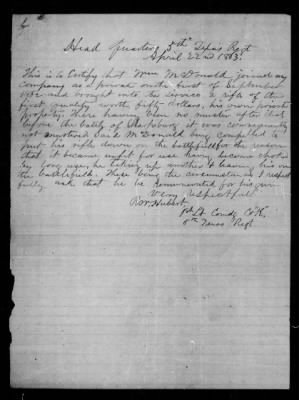 Head Quarters 5th Texas Regt
April 22nd 1863.
This is to Certify that Wm McDonald joined my
Company as a private on the first of September
1862 and brought into the service a rifle of the
first quality worth fifty dollars, his own private
property, there having been no muster after that
before the battle of Sharksburg it was consequently
not mustered and McDonald being compelled to
put his rifle down on the battlefield for the reason
that it became unfit for use having become choked
by long use, he taking up another & leaving his on
the battlefield. These being the circumstances I respect
fully ask that he be remunerated for his gun
Very respectfull
R W Hubert
Lt Comdg Co K,
5th Texas Regt